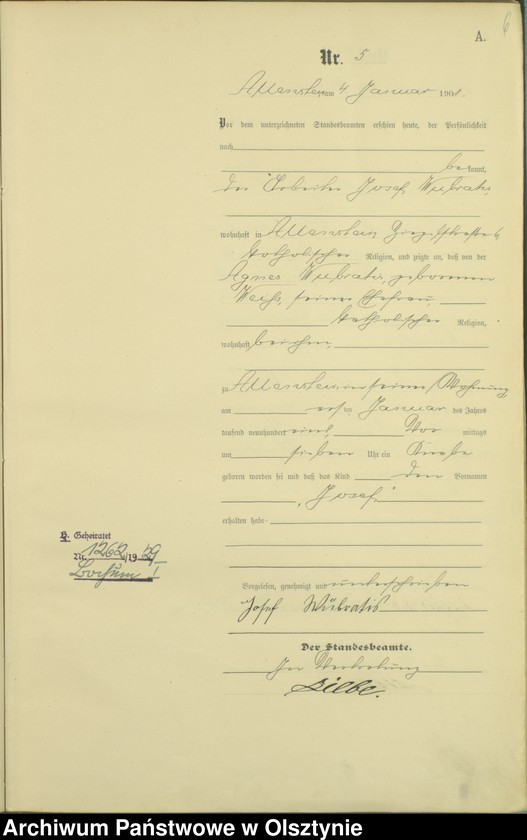 A.
6
Nr. 5
Allenstein, am 4 Januar 1901.
Vor dem unterzeichneten Standesbeamten erschien heute, der Persönlichkeit
nach
bekannt,
der Arbeiter Josef Wübratis
wohnhaft in Allenstein,
katholischer Religion, und zeigte an, daß von der
Agnes Wübratis, geborenen
Weiß, seiner Ehefrau,
katholischer Religion,
wohnhaft bei ihm,
zu Allenstein in seiner Wohnung
am ersten Januar des Jahres
tausend neunhundert eins, Vor mittags
um sieben Uhr ein Knabe
geboren worden sei und daß das Kind den Vornamen
„Josef“
erhalten habe
Vorgelesen, genehmigt und unterschrieben
Josef Wübratis
Der Standesbeamte.
In Vertretung
H. Geheiratet
Nr. 1262/1929
Bochum I
Archiwum Państwowe w Olsztynie